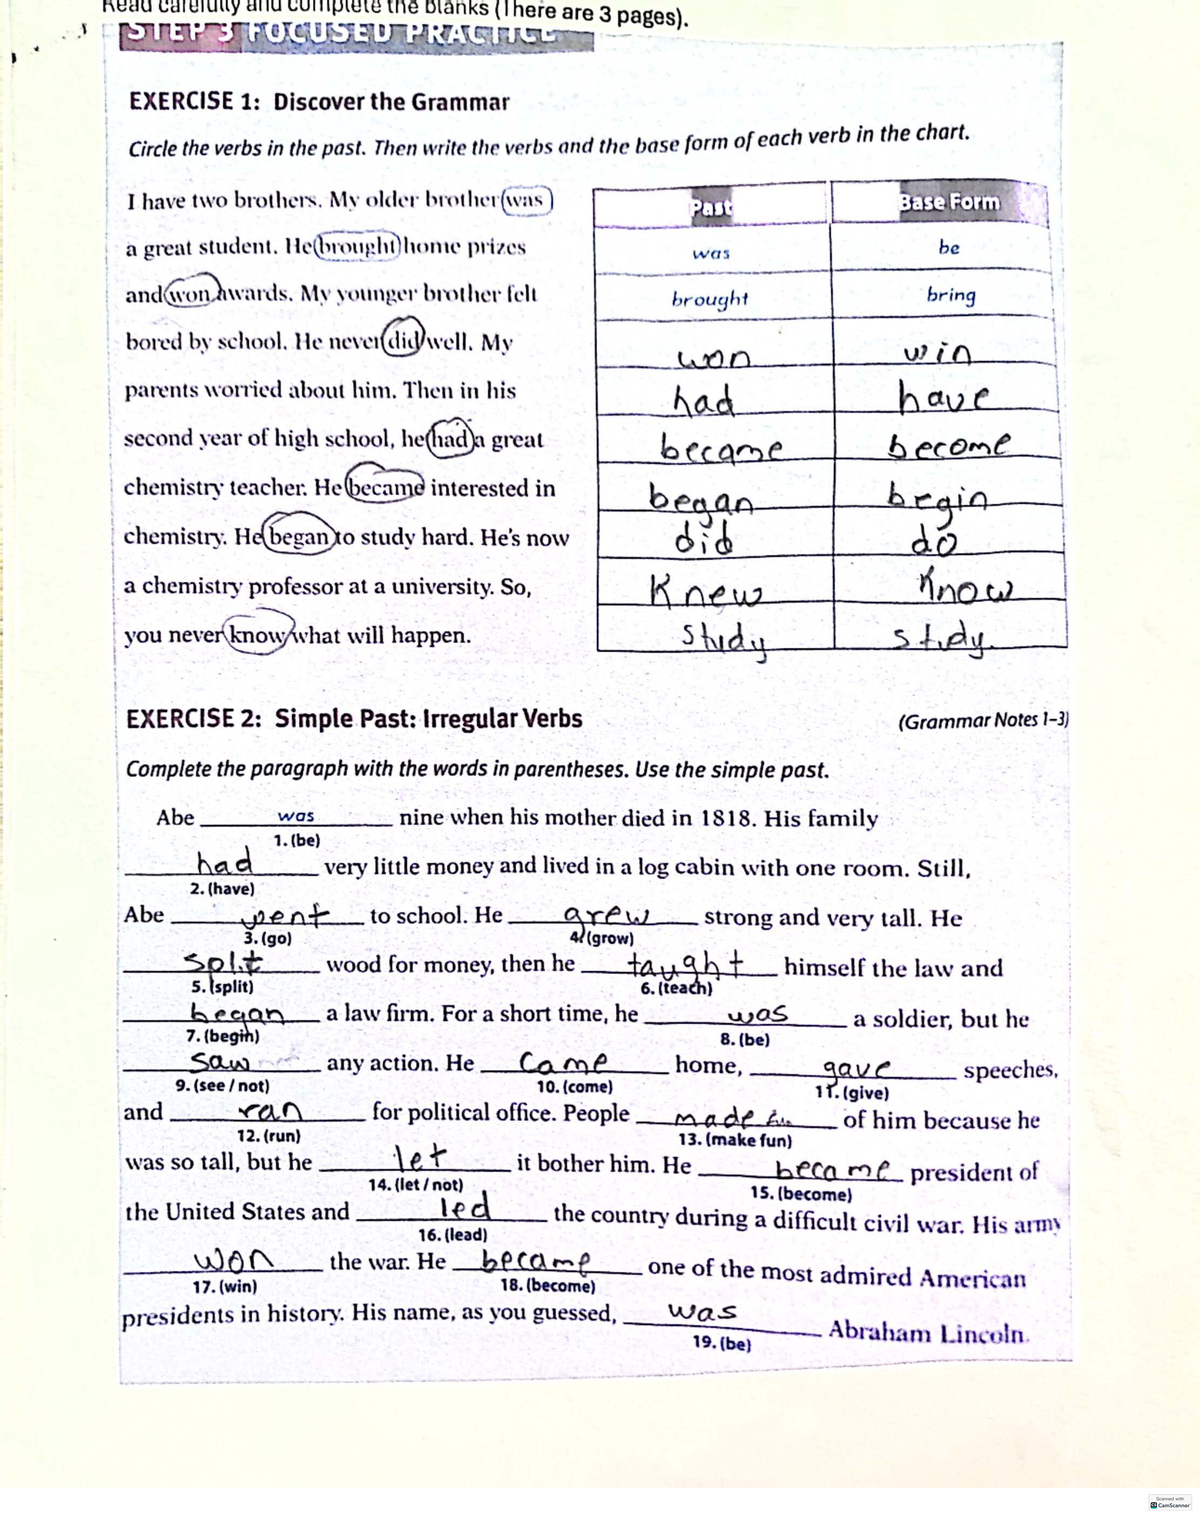 Read carefully and complete the blanks (There are 3 pages).
STEP 3 FOCUSED PRACTICE
EXERCISE 1: Discover the Grammar
Circle the verbs in the past. Then write the verbs and the base form of each verb in the chart.
I have two brothers. My older brother was
a great student. He brought home prizes
and won awards. My younger brother felt
bored by school. He never did well. My
parents worried about him. Then in his
second year of high school, he had a great
chemistry teacher. He became interested in
chemistry. He began to study hard. He's now
a chemistry professor at a university. So,
you never know what will happen.
Past Base Form
was be
brought bring
won win
had have
became become
began begin
did do
Knew Know
study study
EXERCISE 2: Simple Past: Irregular Verbs (Grammar Notes 1–3)
Complete the paragraph with the words in parentheses. Use the simple past.
Abe was nine when his mother died in 1818. His family
1. (be)
had very little money and lived in a log cabin with one room. Still,
2. (have)
Abe went to school. He grew strong and very tall. He
3. (go) 4. (grow)
split wood for money, then he taught himself the law and
5. (split) 6. (teach)
began a law firm. For a short time, he was a soldier, but he
7. (begin) 8. (be)
saw any action. He came home, gave speeches,
9. (see / not) 10. (come) 11. (give)
and ran for political office. People made fun of him because he
12. (run) 13. (make fun)
was so tall, but he let it bother him. He became president of
14. (let / not) 15. (become)
the United States and led the country during a difficult civil war. His army
16. (lead)
won the war. He became one of the most admired American
17. (win) 18. (become)
presidents in history. His name, as you guessed, was Abraham Lincoln.
19. (be)
Scanned with
CamScanner